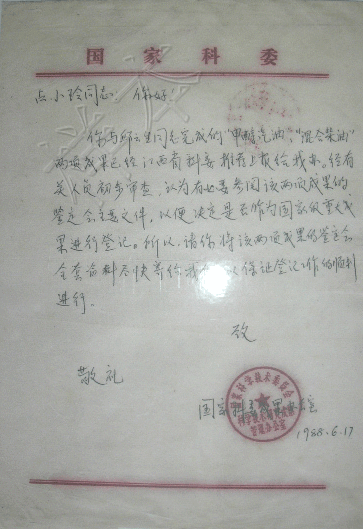 国家科委
小玲同志：你好！
你与邱 同志完成的"甲醇汽油"、"混合柴油"
两项成果已经江西省科委推荐上报给我办。经有
关人员初步审查，认为有必要参阅该两项成果的
鉴定会主要文件，以便决定是否作为国家级重大成
果进行登记。所以，请你将该两项成果的鉴定会
全套资料尽快寄给我办，以保证登记工作的顺利
进行。
致
敬礼
国家科委成果 室
1988.6.17